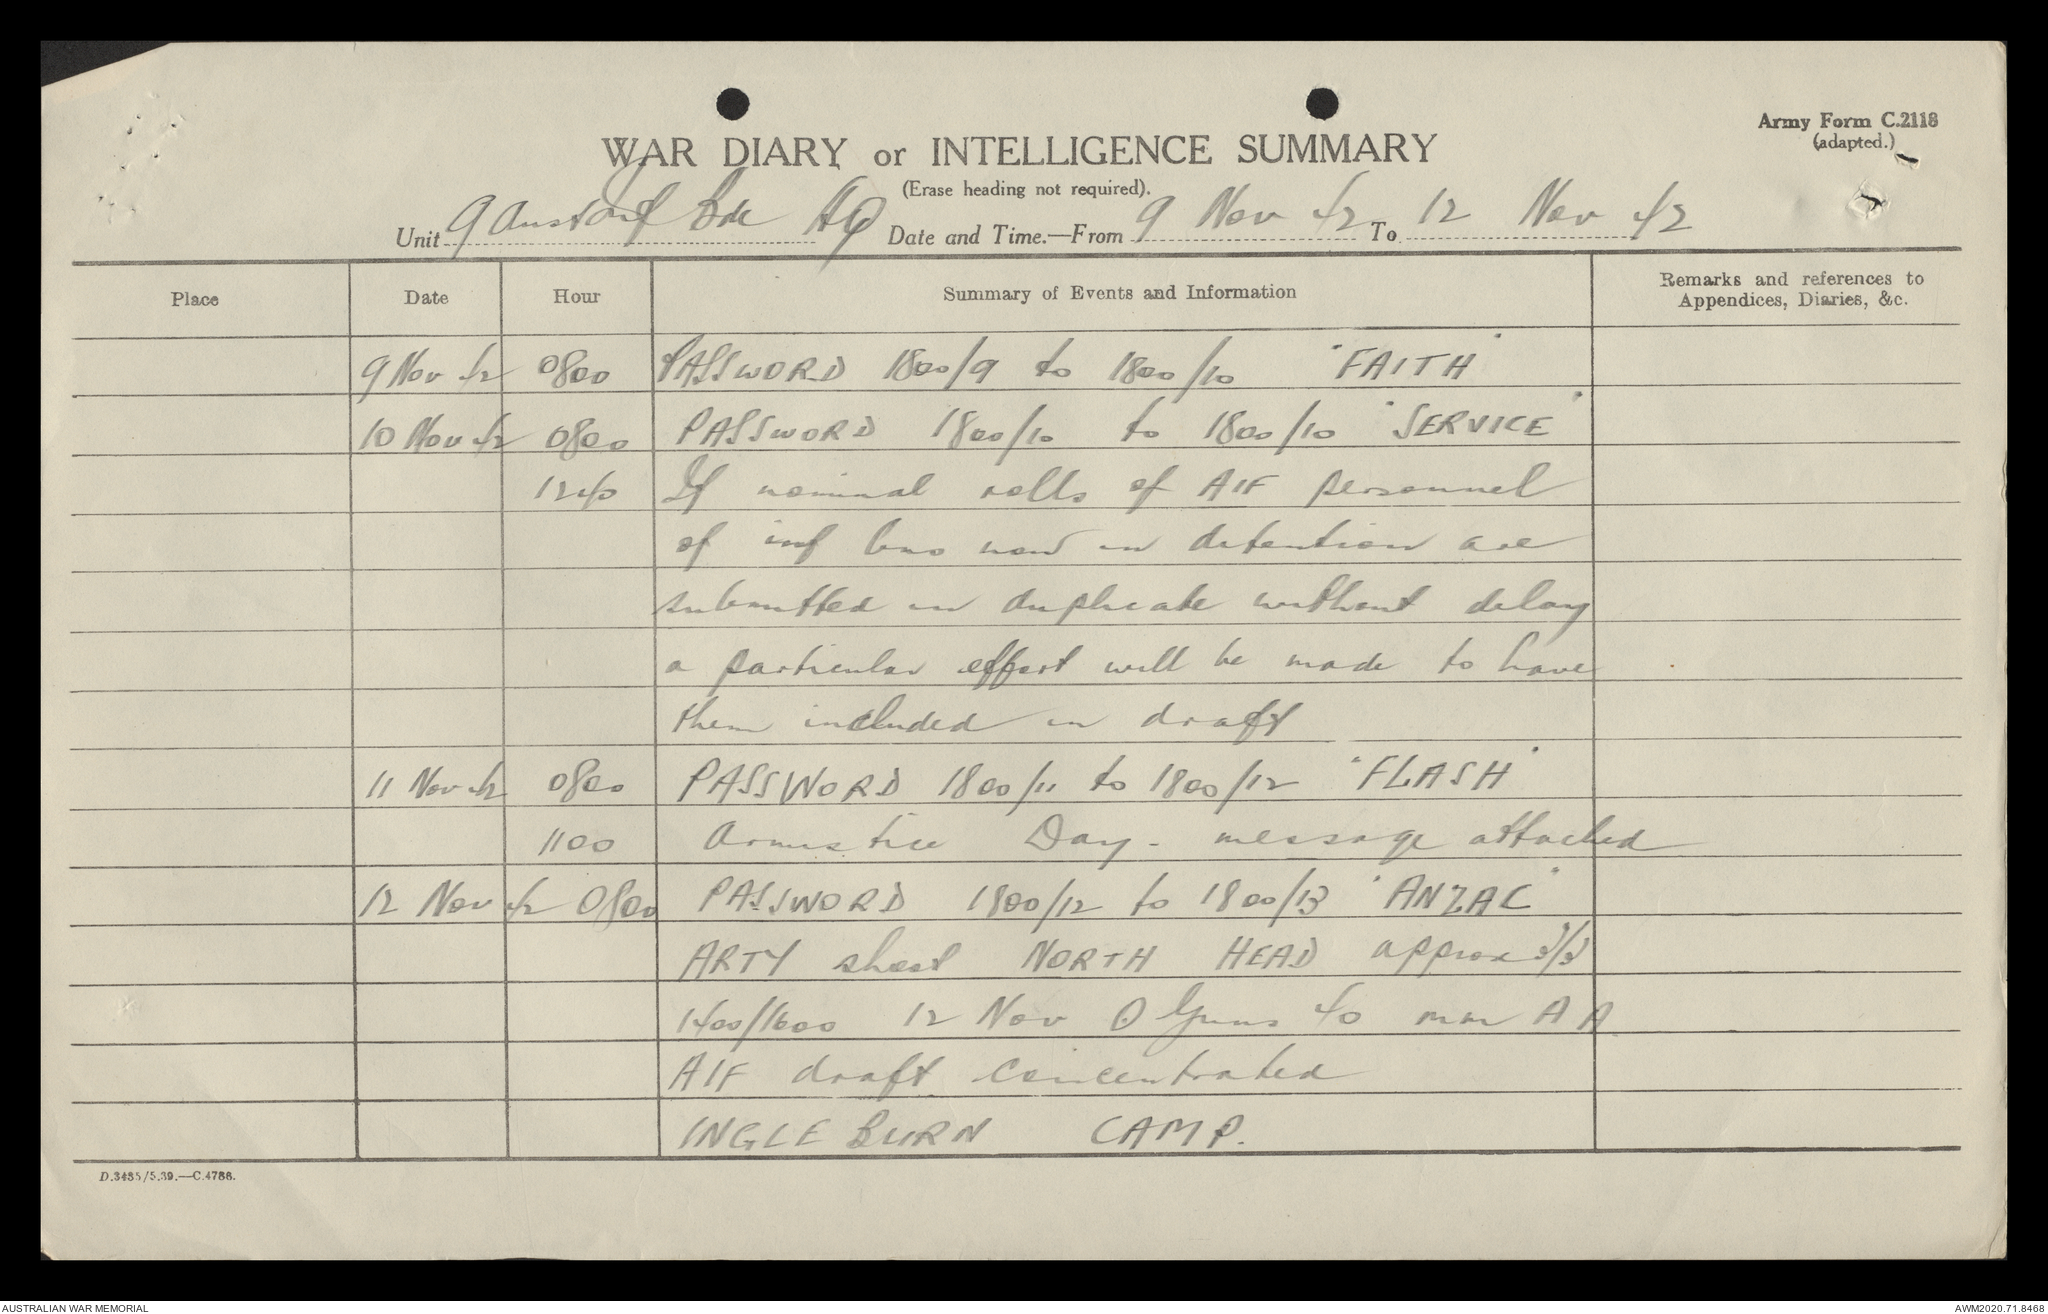 Army Form C.2118
(adapted.)
WAR DIARY or INTELLIGENCE SUMMARY
(Erase heading not required).
Unit 9 Aust Inf Bde HQ Date and Time.—From 9 Nov 42 To 12 Nov 42
Place Date Hour Summary of Events and Information Remarks and references to Appendices, Diaries, &c.
9 Nov 42 0800 PASSWORD 1800/9 to 1800/10 "FAITH"
10 Nov 42 0800 PASSWORD 1800/10 to 1800/10 "SERVICE"
1240 If nominal rolls of AIF personnel
of inf bns now in detention are
submitted in duplicate without delay
a particular effort will be made to have
them included in draft
11 Nov 42 0800 PASSWORD 1800/11 to 1800/12 "FLASH"
1100 Armistice Day - message attached
12 Nov 42 0800 PASSWORD 1800/12 to 1800/13 "ANZAC"
ARTY shoot NORTH HEAD approx
1400/1600 12 Nov Guns 40 mm AA
AIF draft concentrated
INGLEBURN CAMP.
D.3435/5.39.—C.4788.
AUSTRALIAN WAR MEMORIAL
AWM2020.71.8468